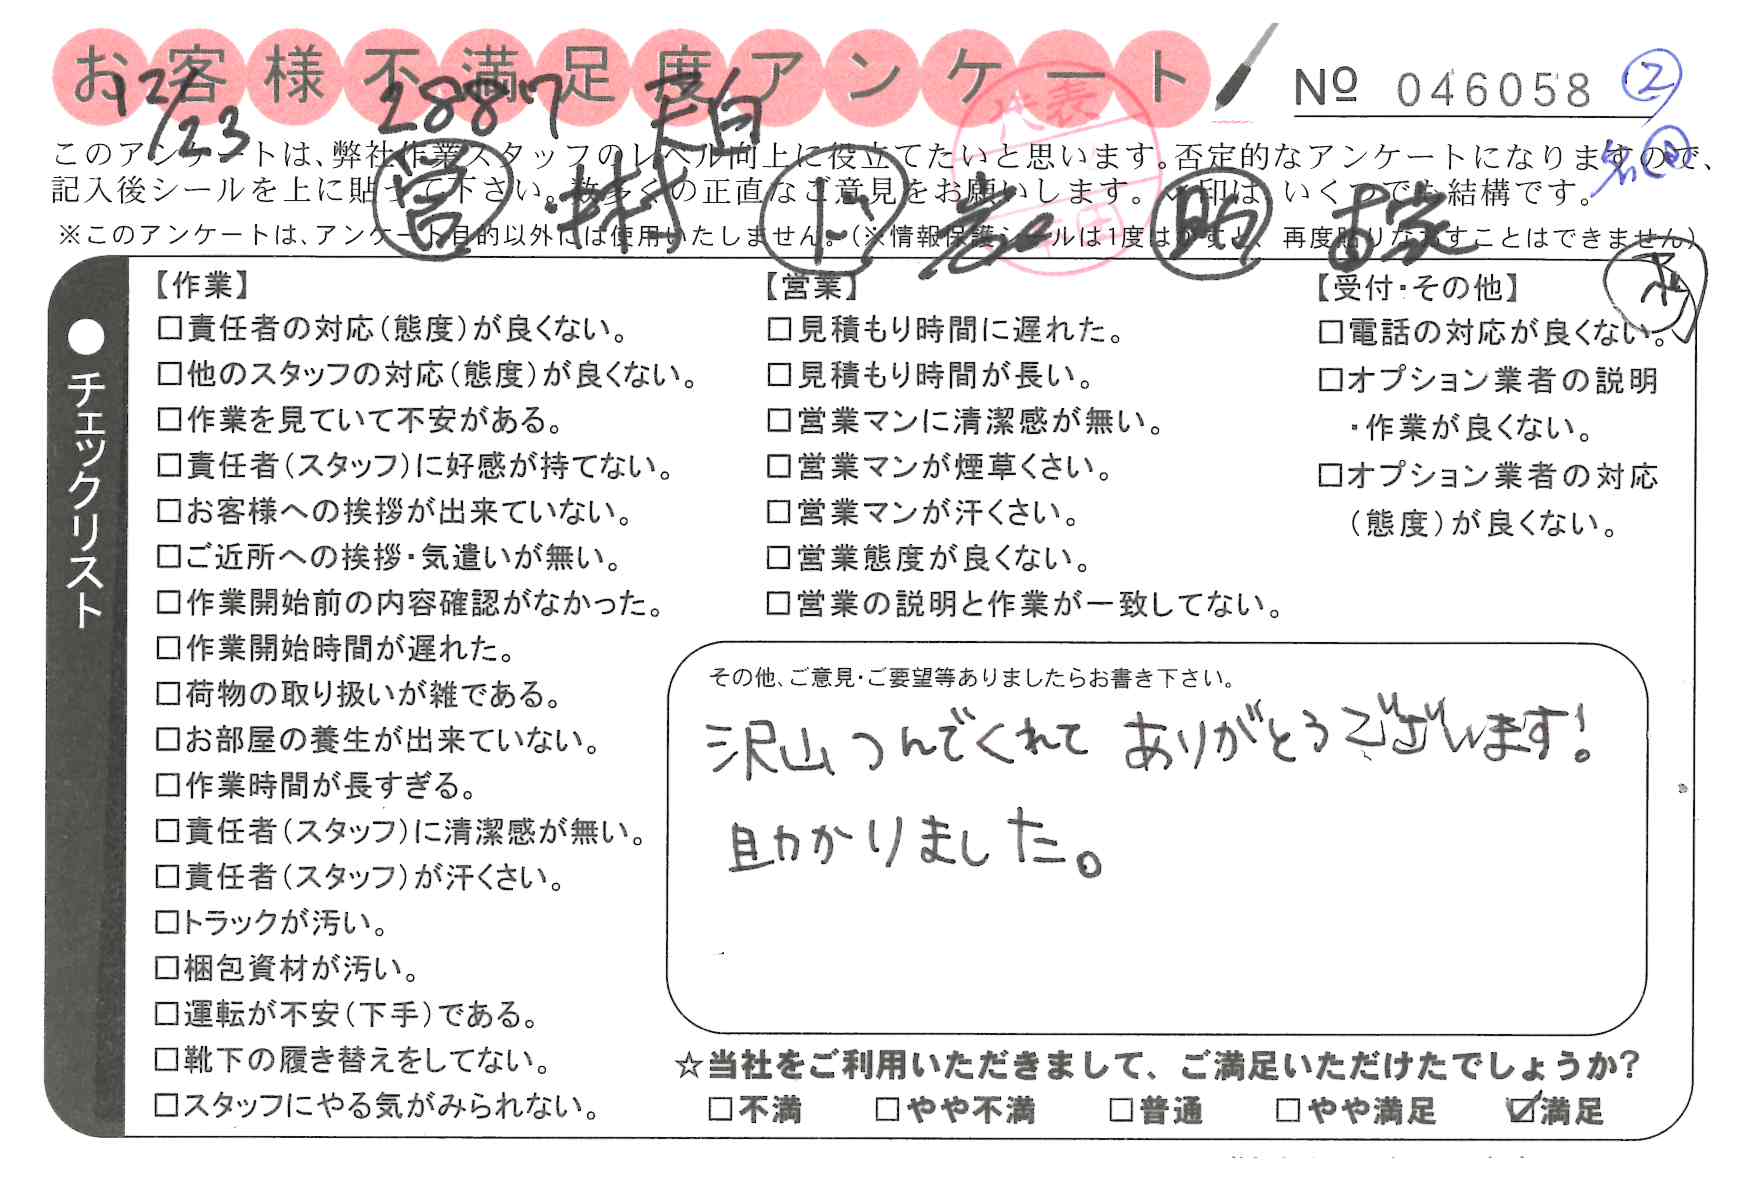 お客様不満足度アンケート
№ 046058 ②
12/23 2887 天白
このアンケートは、弊社作業スタッフのレベル向上に役立てたいと思います。否定的なアンケートになりますので、
記入後シールを上に貼って下さい。数多くの正直なご意見をお願いします。✓印は、いくつでも結構です。
※このアンケートは、アンケート目的以外には使用いたしません。(※情報保護シールは1度はがすと、再度貼りなおすことはできません)
チェックリスト
【作業】
□責任者の対応(態度)が良くない。
□他のスタッフの対応(態度)が良くない。
□作業を見ていて不安がある。
□責任者(スタッフ)に好感が持てない。
□お客様への挨拶が出来ていない。
□ご近所への挨拶・気遣いが無い。
□作業開始前の内容確認がなかった。
□作業開始時間が遅れた。
□荷物の取り扱いが雑である。
□お部屋の養生が出来ていない。
□作業時間が長すぎる。
□責任者(スタッフ)に清潔感が無い。
□責任者(スタッフ)が汗くさい。
□トラックが汚い。
□梱包資材が汚い。
□運転が不安(下手)である。
□靴下の履き替えをしてない。
□スタッフにやる気がみられない。
【営業】
□見積もり時間に遅れた。
□見積もり時間が長い。
□営業マンに清潔感が無い。
□営業マンが煙草くさい。
□営業マンが汗くさい。
□営業態度が良くない。
□営業の説明と作業が一致してない。
【受付・その他】
□電話の対応が良くない。
□オプション業者の説明
・作業が良くない。
□オプション業者の対応
(態度)が良くない。
その他、ご意見・ご要望等ありましたらお書き下さい。
沢山つんでくれて ありがとうございます!
助かりました。
☆当社をご利用いただきまして、ご満足いただけたでしょうか?
□不満 □やや不満 □普通 □やや満足 ☑満足